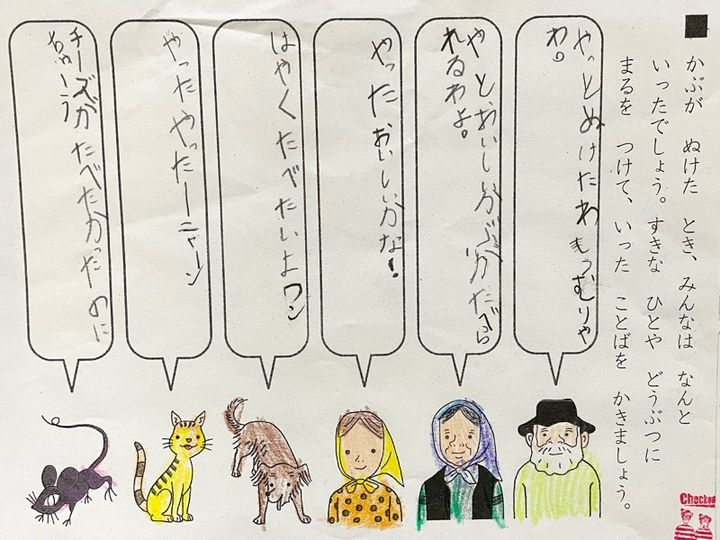 ■
かぶが ぬけた とき、みんなは なんと
いったでしょう。すきな ひとや どうぶつに
まるを つけて、いった ことばを かきましょう。
やっとぬけたわもうむりや
わ。
やっとおいしいかぶがたべら
れるわよ。
やったおいしいかな!
はやくたべたいよワン
やったやったーニャーン
チーズがたべたかったのに
ちゅーう
Checked